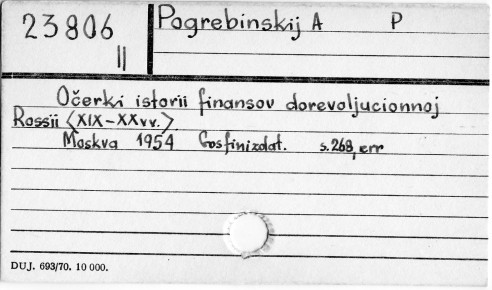 23806 Pogrebinskij A P
II
Očerki istorii finansov dorevoljucionnoj
Rossii <XIX-XXvv.>
Moskva 1954 Gosfinizdat. s.268, err
DUJ. 693/70. 10 000.